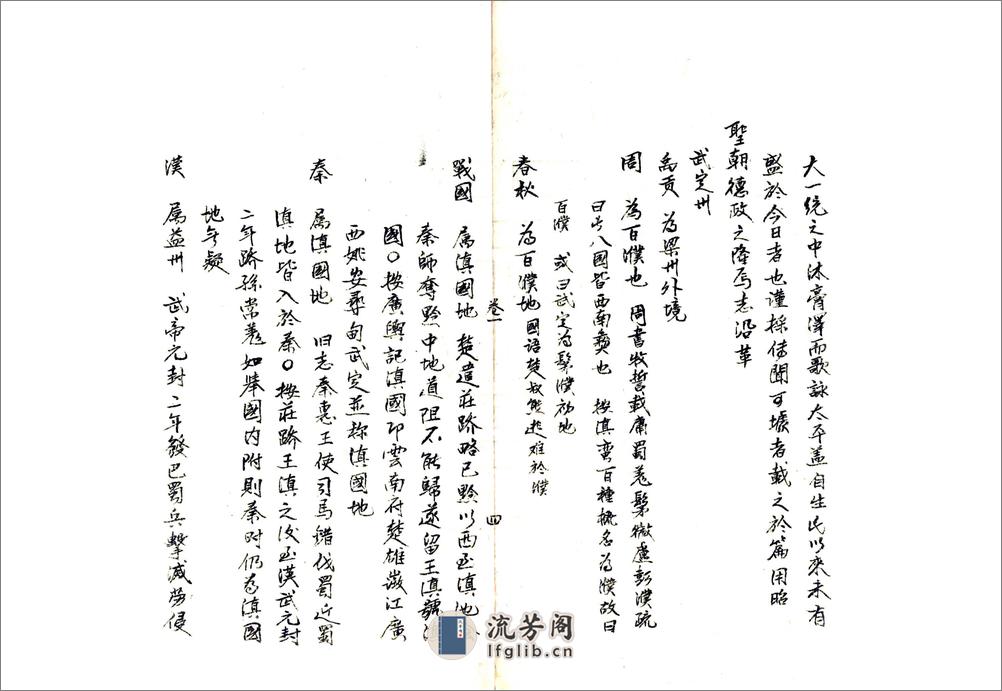 大一统之中沐膏澤而歌詠太平盖自生民以來未有
盛於今日者也謹採傳聞可據者載之於篇用昭
聖朝德政之隆焉志沿革
武定州
禹贡 為梁州外境
周 為百濮也 周書牧誓載庸蜀羌髳微盧彭濮疏
曰此八國皆西南彝也 按滇蛮百種概名為濮故曰
百濮 或曰武定為髳濮初地
春秋 為百濮地 國語楚叔熊逃难於濮
卷一
四
戰國 属滇國地 楚遣莊蹻略巴黔以西至滇池
秦師奪黔中地道阻不能歸遂留王滇號
國○按廣輿記滇國即雲南府楚雄澂江廣
西姚安尋甸武定並称滇國地
秦 属滇國地 旧志秦惠王使司馬錯伐蜀近蜀
滇地皆入於秦○按莊蹻王滇之後至漢武元封
二年蹻孫常羌始舉國内附則秦时仍為滇國
地无疑
漢 属益州 武帝元封二年發巴蜀兵擊滅劳侵
流芳阁
lfglib.cn